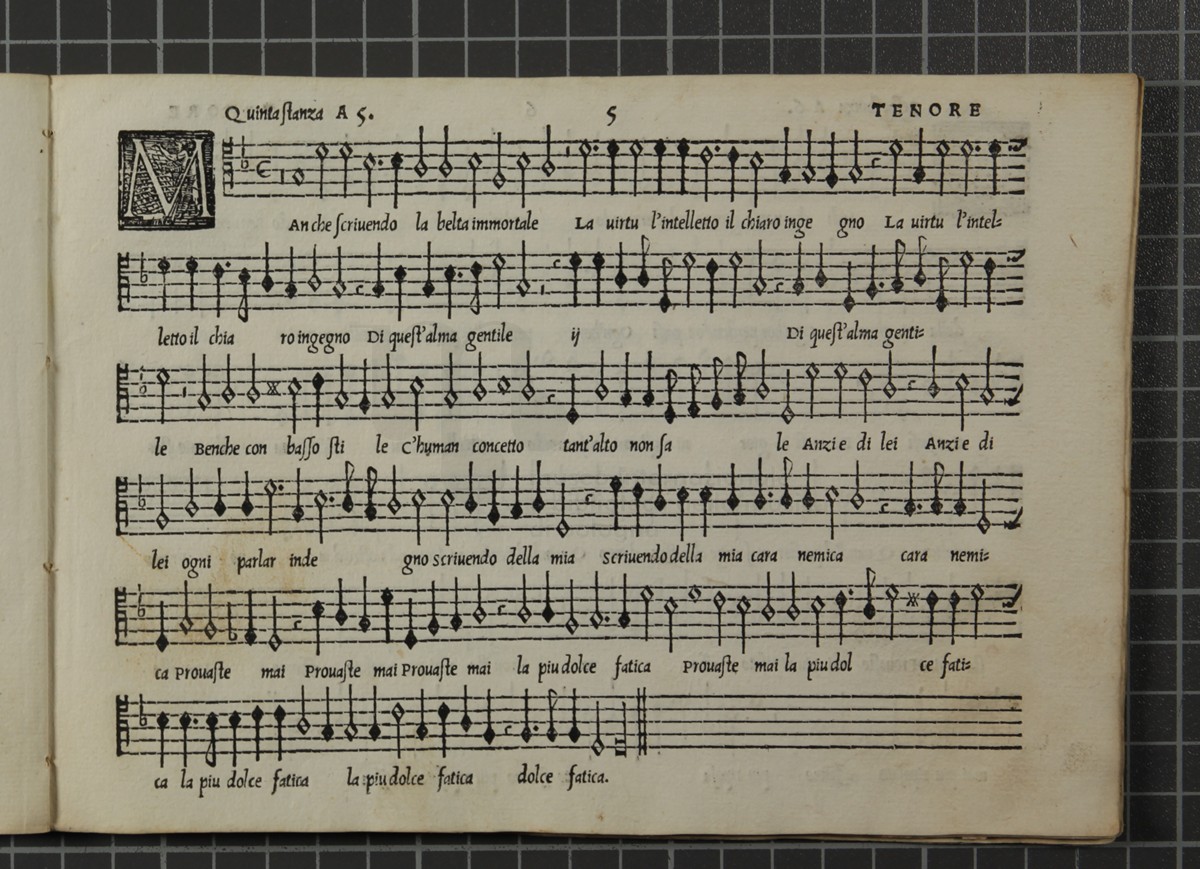 Quinta stanza A 5. 5 TENORE
M
Anche scriuendo la belta immortale La uirtu l'intelletto il chiaro inge gno La uirtu l'intel-
letto il chia ro ingegno Di quest'alma gentile ij Di quest'alma genti-
le Benche con basso sti le C'human concetto tant'alto non sa le Anzi e di lei Anzi e di
lei ogni parlar inde gno scriuendo della mia scriuendo della mia cara nemica cara nemi-
ca Prouaste mai Prouaste mai Prouaste mai la piu dolce fatica Prouaste mai la piu dol ce fati-
ca la piu dolce fatica la piu dolce fatica dolce fatica.